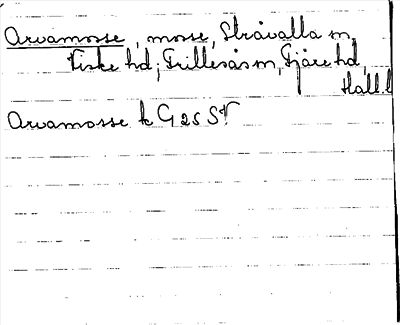 Arvamosse, mosse, Stråvalla sn,
Viske hd; Frillesås sn, Fjäre hd,
Hall. l
Arvamosse k G 25 SV